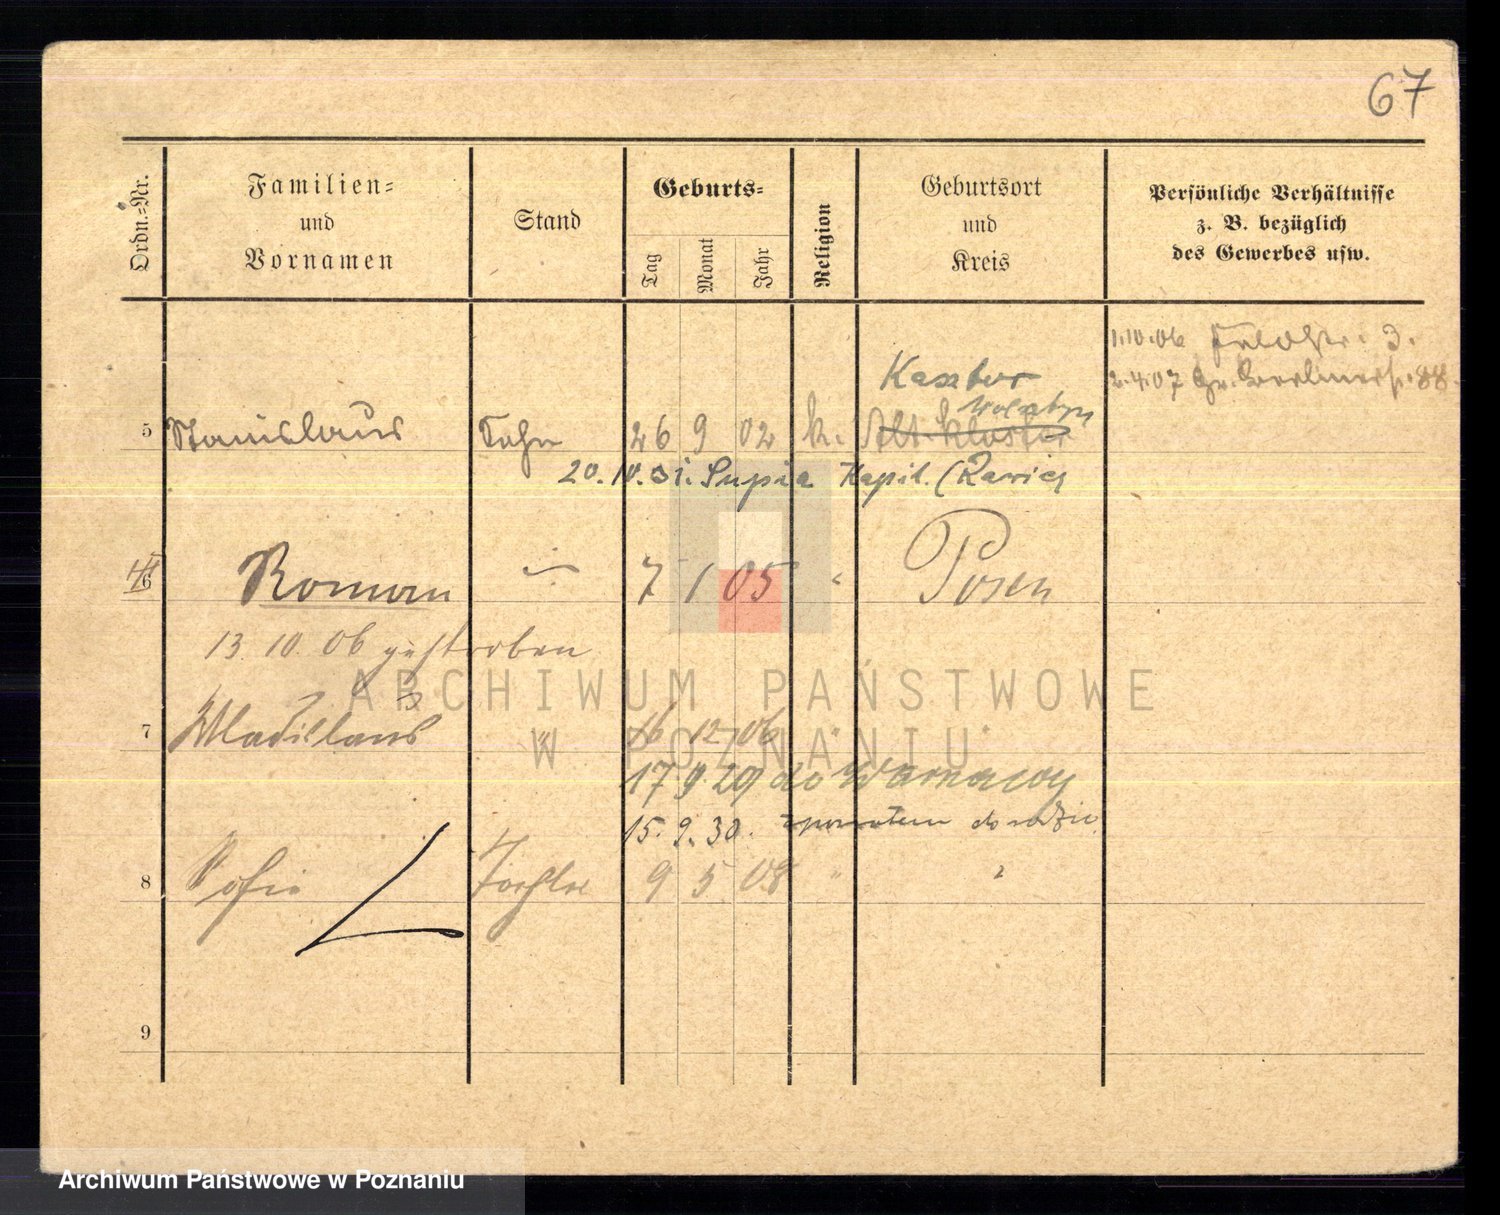 67
Ordn.=Nr.
Familien=
und
Vornamen
Stand
Geburts=
Tag
Monat
Jahr
Religion
Geburtsort
und
Kreis
Persönliche Verhältnisse
z. B. bezüglich
des Gewerbes usw.
1.10.06 Feldstr. 3.
2.4.07 Gr. Berlinerstr. 88.
Kaszbor
Wolsztyn
5 Stanislaus Sohn 26 9 02 k. Alt-Kloster
20.10.31. Supia Kapil. (Rawicz
6 Roman 7 1 05 " Posen
13 10. 06 gestorben
7 Wladislaus " 16 12 06 " "
17 9 29 do Warszawy
15. 9. 30. z powrotem do rodzic.
8 Sofie Tochter 9 5 08 " "
9
ARCHIWUM PAŃSTWOWE
W POZNANIU
Archiwum Państwowe w Poznaniu